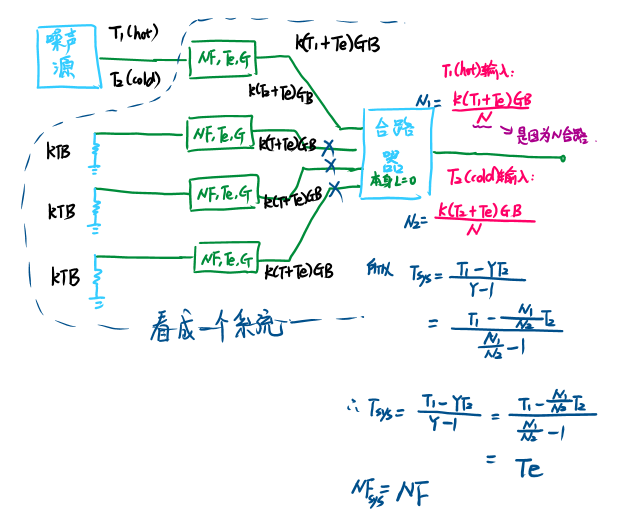 噪声源
T₁(hot)
T₂(cold)
NF,Te,G
k(T₁+Te)GB
k(T₂+Te)GB
kTB
NF,Te,G
k(T+Te)GB
kTB
NF,Te,G
k(T+Te)GB
kTB
NF,Te,G
k(T+Te)GB
合路器
本身L=0
T₁(hot)输入:
N₁= k(T₁+Te)GB / N
→是因为N合路.
T₂(cold)输入:
N₂= k(T₂+Te)GB / N
看成一个系统
所以 Tsys= (T₁-YT₂) / (Y-1)
= (T₁ - (N₁/N₂)T₂) / (N₁/N₂ - 1)
∴ Tsys= (T₁-YT₂) / (Y-1) = (T₁ - (N₁/N₂)T₂) / (N₁/N₂ - 1)
= Te
NFsys= NF